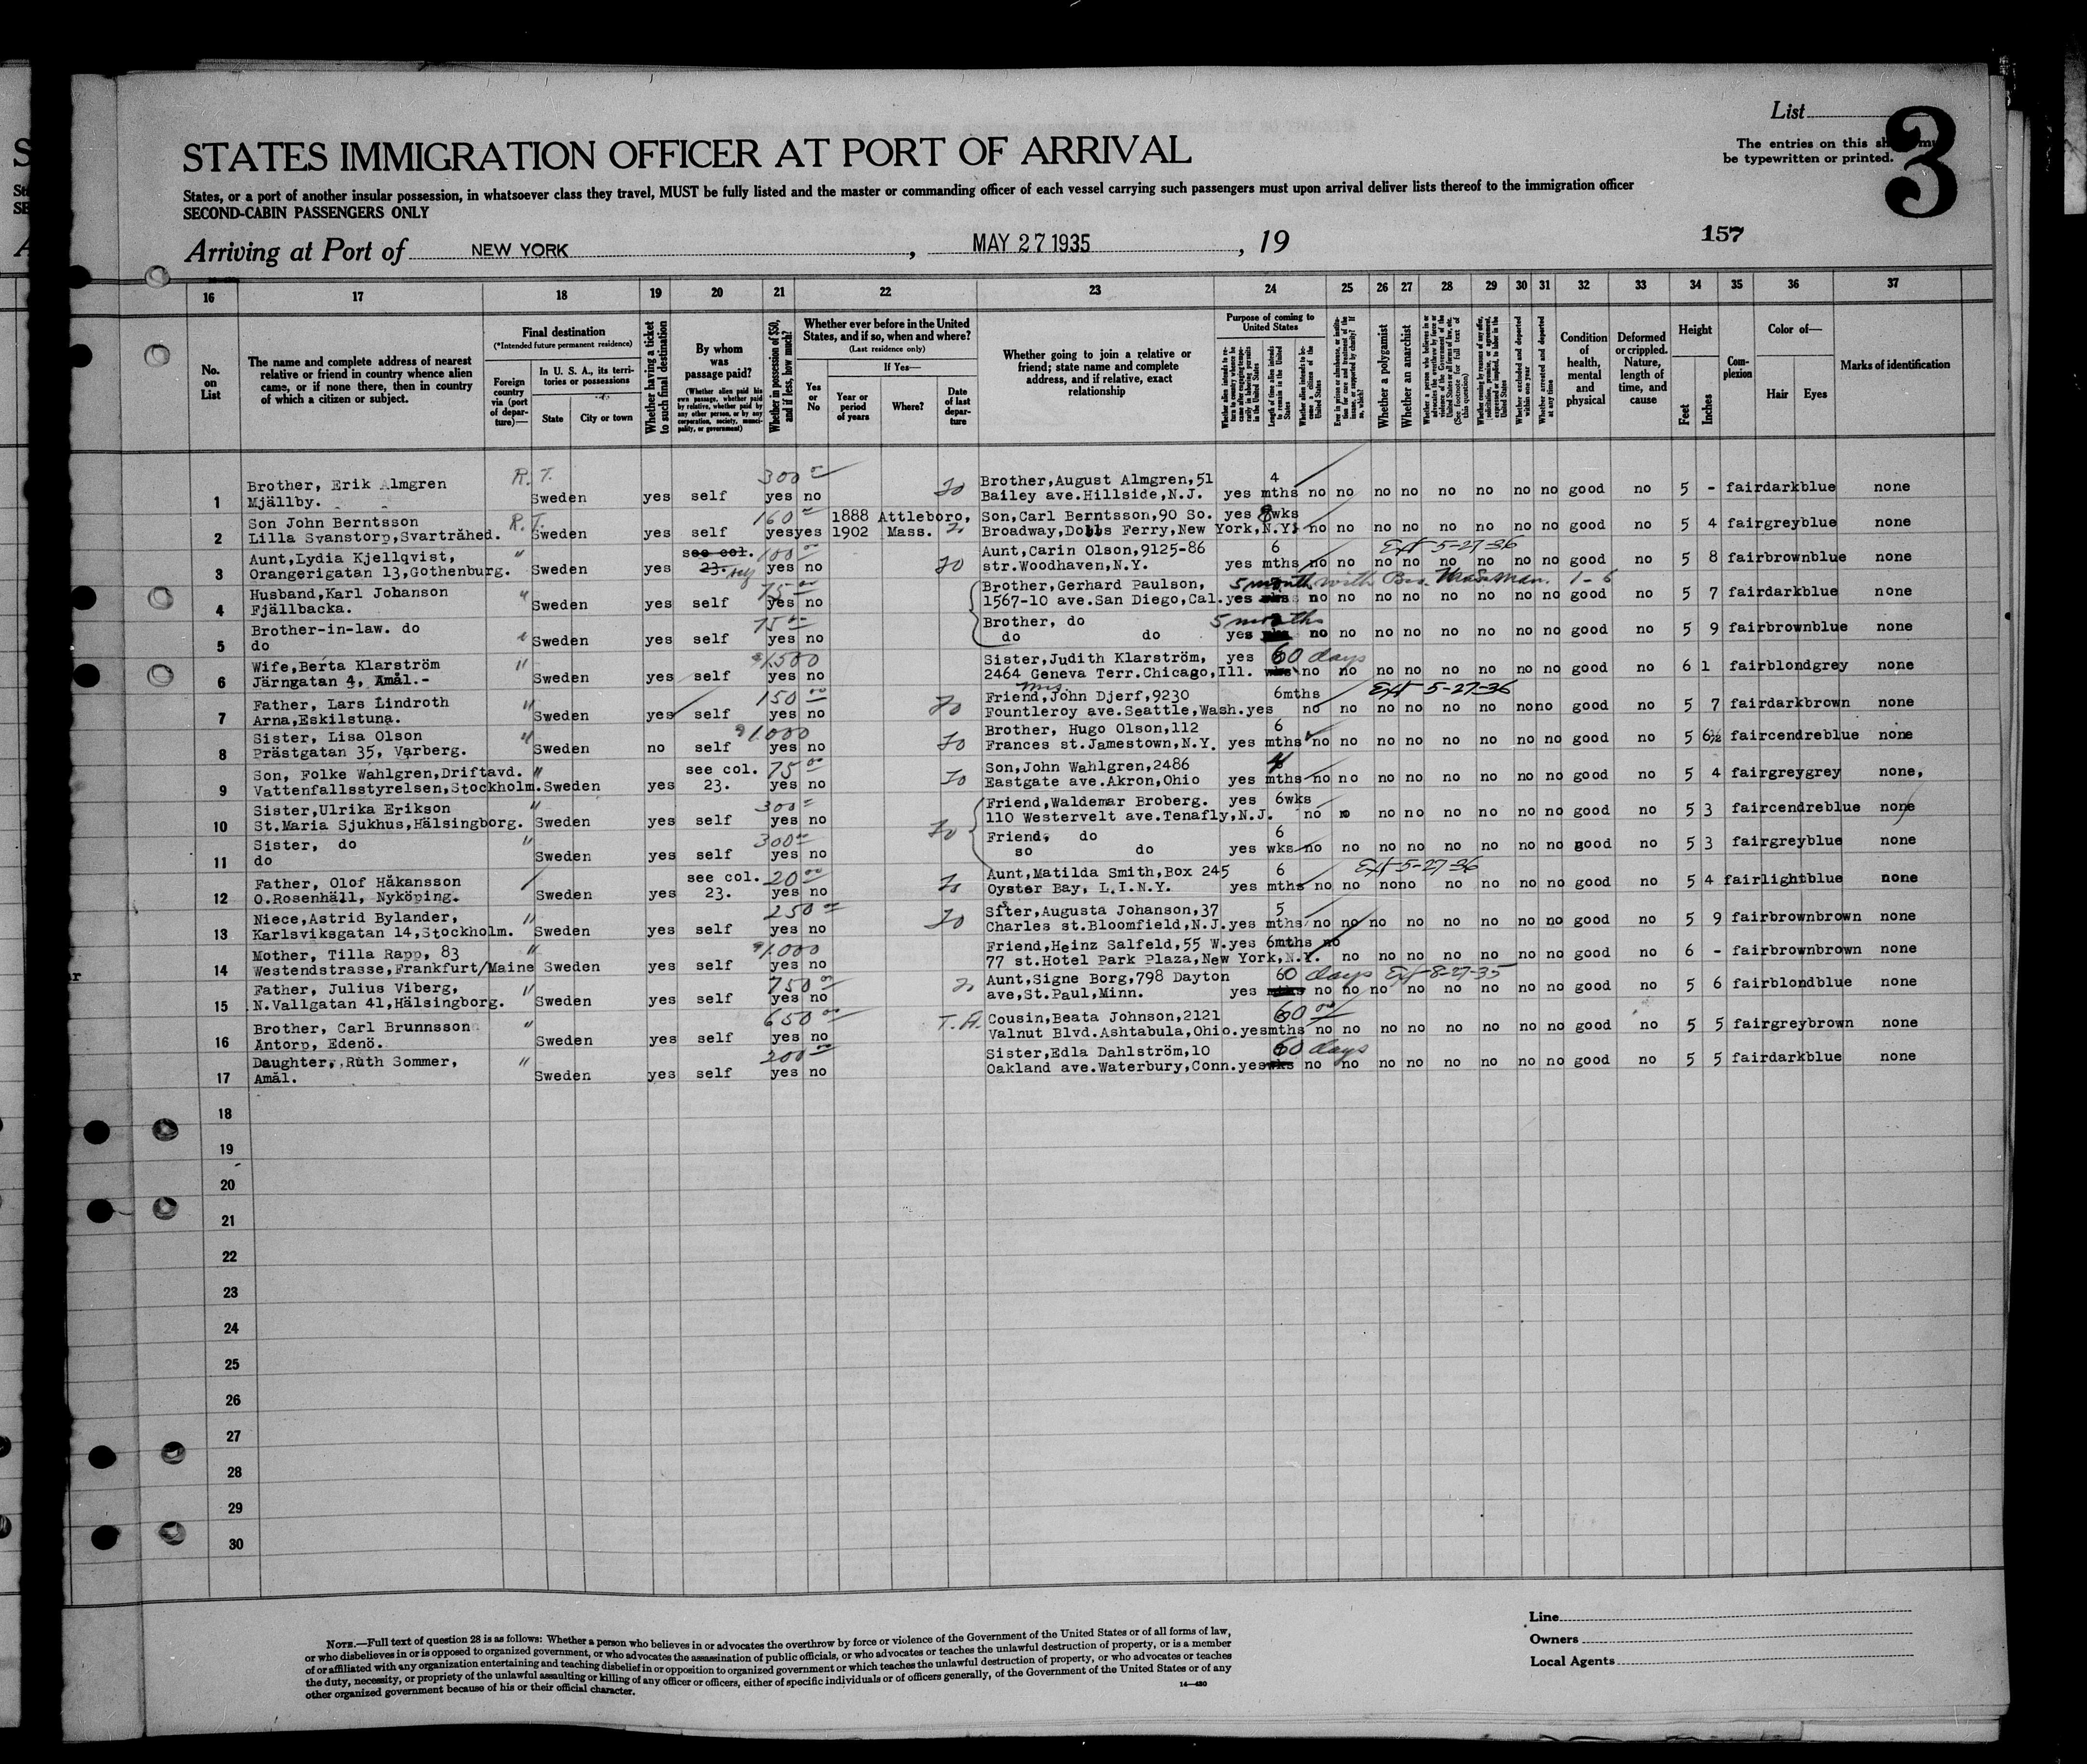 List
3
The entries on this sh
be typewritten or printed.
STATES IMMIGRATION OFFICER AT PORT OF ARRIVAL
States, or a port of another insular possession, in whatsoever class they travel, MUST be fully listed and the master or commanding officer of each vessel carrying such passengers must upon arrival deliver lists thereof to the immigration officer
SECOND-CABIN PASSENGERS ONLY
157
Arriving at Port of NEW YORK, MAY 27 1935, 19
16 17 18 19 20 21 22 23 24 25 26 27 28 29 30 31 32 33 34 35 36 37
No. on List
The name and complete address of nearest relative or friend in country whence alien came, or if none there, then in country of which a citizen or subject.
Final destination
(*Intended future permanent residence)
Foreign country via (port of departure)—
In U. S. A., its territories or possessions
State
City or town
Whether having a ticket to such final destination
By whom was passage paid?
(Whether alien paid his own passage, whether paid by relative, whether paid by any other person, or by any corporation, society, municipality, or government)
Whether in possession of $50, and if less, how much?
Whether ever before in the United States, and if so, when and where?
(Last residence only)
Yes or No
If Yes—
Year or period of years
Where?
Date of last departure
Whether going to join a relative or friend; state name and complete address, and if relative, exact relationship
Purpose of coming to United States
Length of time alien intends to remain in the United States
Whether alien intends to become a citizen of the United States
Whether a polygamist
Whether an anarchist
Whether excluded and deported within one year
Whether arrested and deported at any time
Condition of health, mental and physical
Deformed or crippled. Nature, length of time, and cause
Height
Feet
Inches
Complexion
Color of—
Hair
Eyes
Marks of identification
R. T. 300 00 Brother, August Almgren, 51 4
1 Brother, Erik Almgren
Mjällby. Sweden yes self yes no Bailey ave. Hillside, N.J. yes mths no no no no no no no no good no 5 - fair dark blue none
R. T. 160 1888 Attleboro, Son, Carl Berntsson, 90 So. yes 8wks
2 Son John Berntsson
Lilla Svanstorp, Svartråhed. Sweden yes self yes yes 1902 Mass. Broadway, Dobbs Ferry, New York, N.Y. no no no no no no no no good no 5 4 fair grey blue none
" see col. 100 00 Aunt, Carin Olson, 9125-86 6 Ext 5-27-36
3 Aunt, Lydia Kjellqvist,
Orangerigatan 13, Gothenburg. Sweden yes 23. self yes no str. Woodhaven, N.Y. yes mths no no no no no no no no good no 5 8 fair brown blue none
" 75 00 Brother, Gerhard Paulson, 5 month with 1-6
4 Husband, Karl Johanson
Fjällbacka. Sweden yes self yes no 1567-10 ave. San Diego, Cal. yes no no no no no no no no good no 5 7 fair dark blue none
" 75 00 Brother, do 5 months
5 Brother-in-law. do
do Sweden yes self yes no do do yes no no no no no no no no good no 5 9 fair brown blue none
" $1,500 Sister, Judith Klarström, yes 60 days
6 Wife, Berta Klarström
Järngatan 4, Åmål.- Sweden yes self yes no 2464 Geneva Terr. Chicago, Ill. wks no no no no no no no no good no 6 1 fair blond grey none
" 150 00 Mrs Friend, John Djerf, 9230 6mths Ext 5-27-36
7 Father, Lars Lindroth
Arna, Eskilstuna. Sweden yes self yes no Fountleroy ave. Seattle, Wash. yes no no no no no no no no good no 5 7 fair dark brown none
" $1.000 Brother, Hugo Olson, 112 6
8 Sister, Lisa Olson
Prästgatan 35, Varberg. Sweden no self yes no Frances st. Jamestown, N.Y. yes mths no no no no no no no no good no 5 6½ fair cendre blue none
" see col. 75 00 Son, John Wahlgren, 2486 4
9 Son, Folke Wahlgren, Driftavd.
Vattenfallsstyrelsen, Stockholm. Sweden yes 23. yes no Eastgate ave. Akron, Ohio yes mths no no no no no no no no good no 5 4 fair grey grey none,
" 300 Friend, Waldemar Broberg. yes 6wks
10 Sister, Ulrika Erikson
St. Maria Sjukhus, Hälsingborg. Sweden yes self yes no 110 Westervelt ave. Tenafly, N.J. no no no no no no no no good no 5 3 fair cendre blue none
" 300 00 Friend, do 6
11 Sister, do
do Sweden yes self yes no so do yes wks no no no no no no no no good no 5 3 fair grey blue none
see col. 20 00 Aunt, Matilda Smith, Box 245 6 Ext 5-27-36
12 Father, Olof Håkansson
O. Rosenhäll, Nyköping. Sweden yes 23. yes no Oyster Bay, L.I.N.Y. yes mths no no no no no no no no good no 5 4 fair light blue none
" 250 00 Sister, Augusta Johanson, 37 5
13 Niece, Astrid Bylander,
Karlsviksgatan 14, Stockholm. Sweden yes self yes no Charles st. Bloomfield, N.J. yes mths no no no no no no no no good no 5 9 fair brown brown none
" $1.000 Friend, Heinz Salfeld, 55 W. yes 6mths no
14 Mother, Tilla Rapp, 83
Westendstrasse, Frankfurt/Maine Sweden yes self yes no 77 st. Hotel Park Plaza, New York, N.Y. no no no no no no no good no 6 - fair brown brown none
" 750 00 Aunt, Signe Borg, 798 Dayton 60 days Ext 8-27-35
15 Father, Julius Viberg,
N. Vallgatan 41, Hälsingborg. Sweden yes self yes no ave, St. Paul, Minn. yes mths no no no no no no no no good no 5 6 fair blond blue none
" 650 00 T. A. Cousin, Beata Johnson, 2121 60
16 Brother, Carl Brunnsson
Antorp, Edenö. Sweden yes self yes no Valnut Blvd. Ashtabula, Ohio. yes mths no no no no no no no no good no 5 5 fair grey brown none
" 200 00 Sister, Edla Dahlström, 10 60 days
17 Daughter, Ruth Sommer,
Åmål. Sweden yes self yes no Oakland ave. Waterbury, Conn. yes wks no no no no no no no no good no 5 5 fair dark blue none
18
19
20
21
22
23
24
25
26
27
28
29
30
Line
Owners
Local Agents
NOTE.—Full text of question 28 is as follows: Whether a person who believes in or advocates the overthrow by force or violence of the Government of the United States or of all forms of law,
or who disbelieves in or is opposed to organized government, or who advocates the assassination of public officials, or who advocates or teaches the unlawful destruction of property, or is a member
of or affiliated with any organization entertaining and teaching disbelief in or opposition to organized government or which teaches the unlawful destruction of property, or who advocates or teaches
the duty, necessity, or propriety of the unlawful assaulting or killing of any officer or officers, either of specific individuals or of officers generally, of the Government of the United States or of any
other organized government because of his or their official character.
14—430